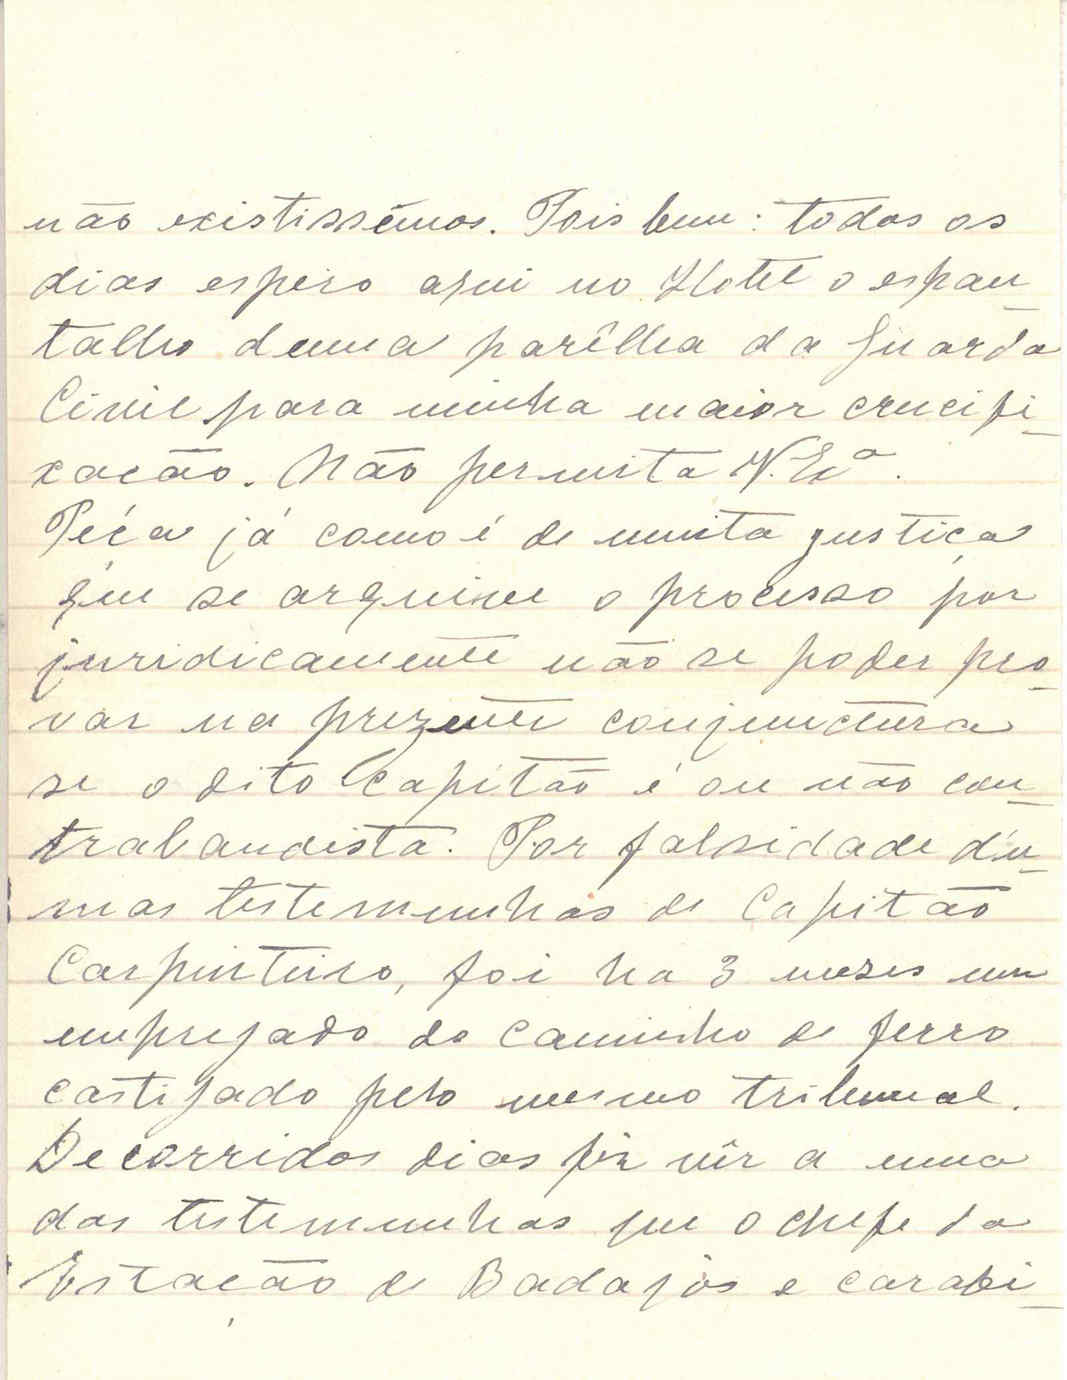 não existissêmos. Pois bem: todos os
dias espero aqui no Hotel o espan-
talho duma parêlha da Guarda
Civil para minha maior crucifi-
xacão. Não permita V. Exª.
Péça já como é de muita justiça
que se arquive o processo por
juridicamente não se poder pro-
var na prezente conjunctura
se o dito Capitão é ou não con-
trabandista. Por falsidade d'u-
mas testemunhas do Capitão
Carpinteiro, foi ha 3 mezes um
empregado do caminho de ferro
castigado pelo mesmo tribunal.
Decorridos dias fiz vêr a uma
das testemunhas que o chefe da
Estação de Badajós e carabi-